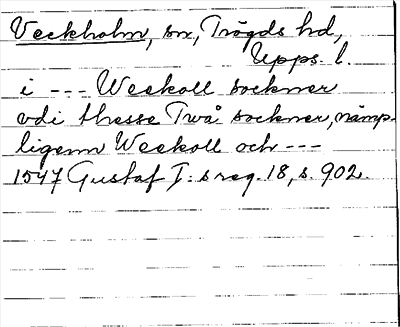 Veckholm, sn, Trögds hd,
Upps. l.
i --- Weekoll sockner
vdi thesse Twå sockner, nämp-
ligenn Weekoll och ---
1547 Gustaf I:s reg. 18, s. 902.